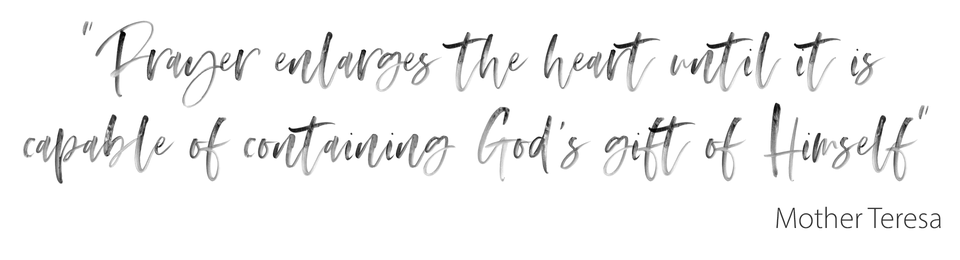 "Prayer enlarges the heart until it is
capable of containing God's gift of Himself"
Mother Teresa